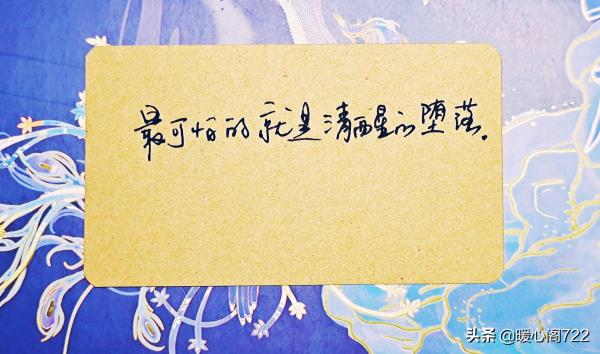 最可怕的就是清醒的堕落。
头条 @暖心阁722